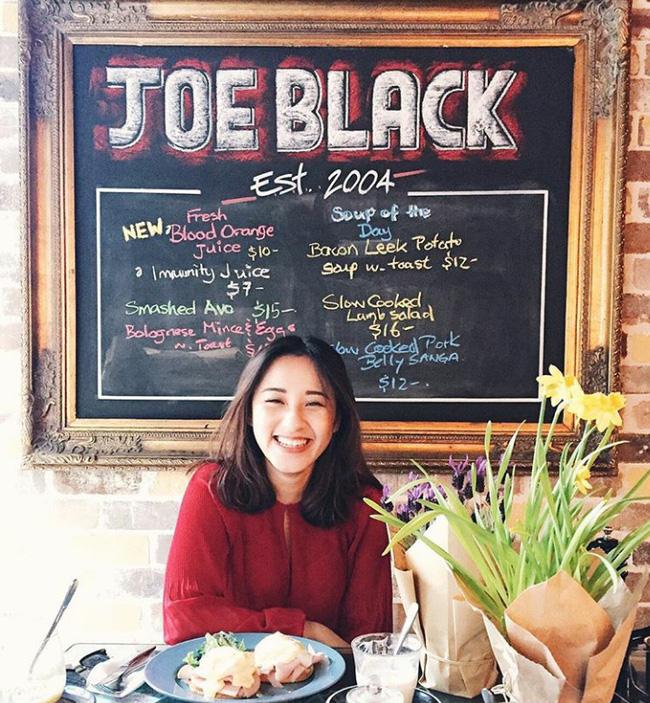 JOE BLACK
Est. 2004
NEW Fresh
Blood Orange
Juice $10-
Immunity Juice
$7-
Smashed Avo $15-
Bolognese Mince & Eggs
w. Toast
Soup of the
Day
Bacon Leek Potato
Soup w- toast $12-
Slow Cooked
Lamb Salad
$16-
Cooked Pork
Belly SANGA
$12-